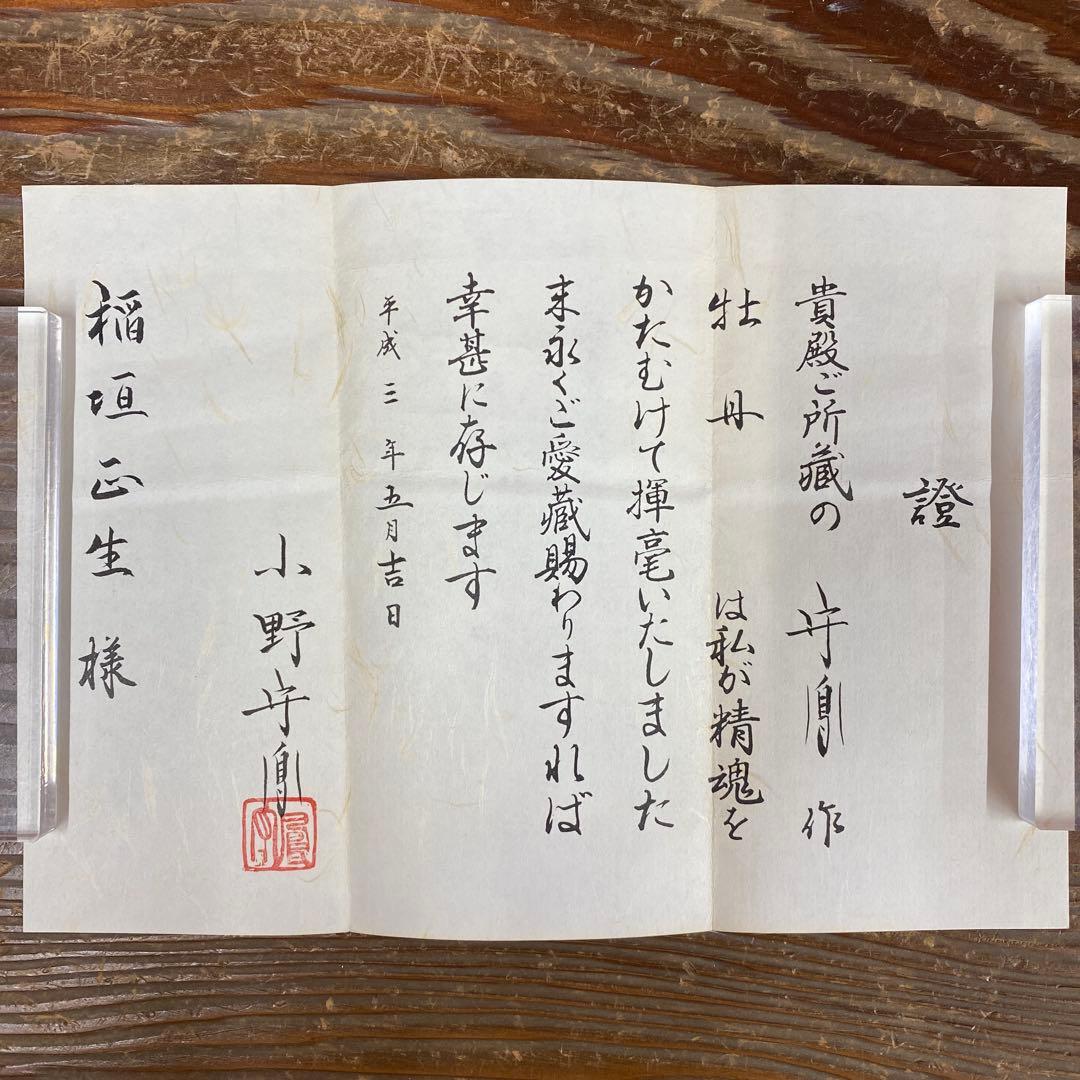 證
貴殿ご所蔵の 守凰 作
牡丹 は私が精魂を
かたむけて揮毫いたしました
末永くご愛蔵賜わりますれば
幸甚に存じます
平成三年五月吉日
小野守凰
稲垣正生様